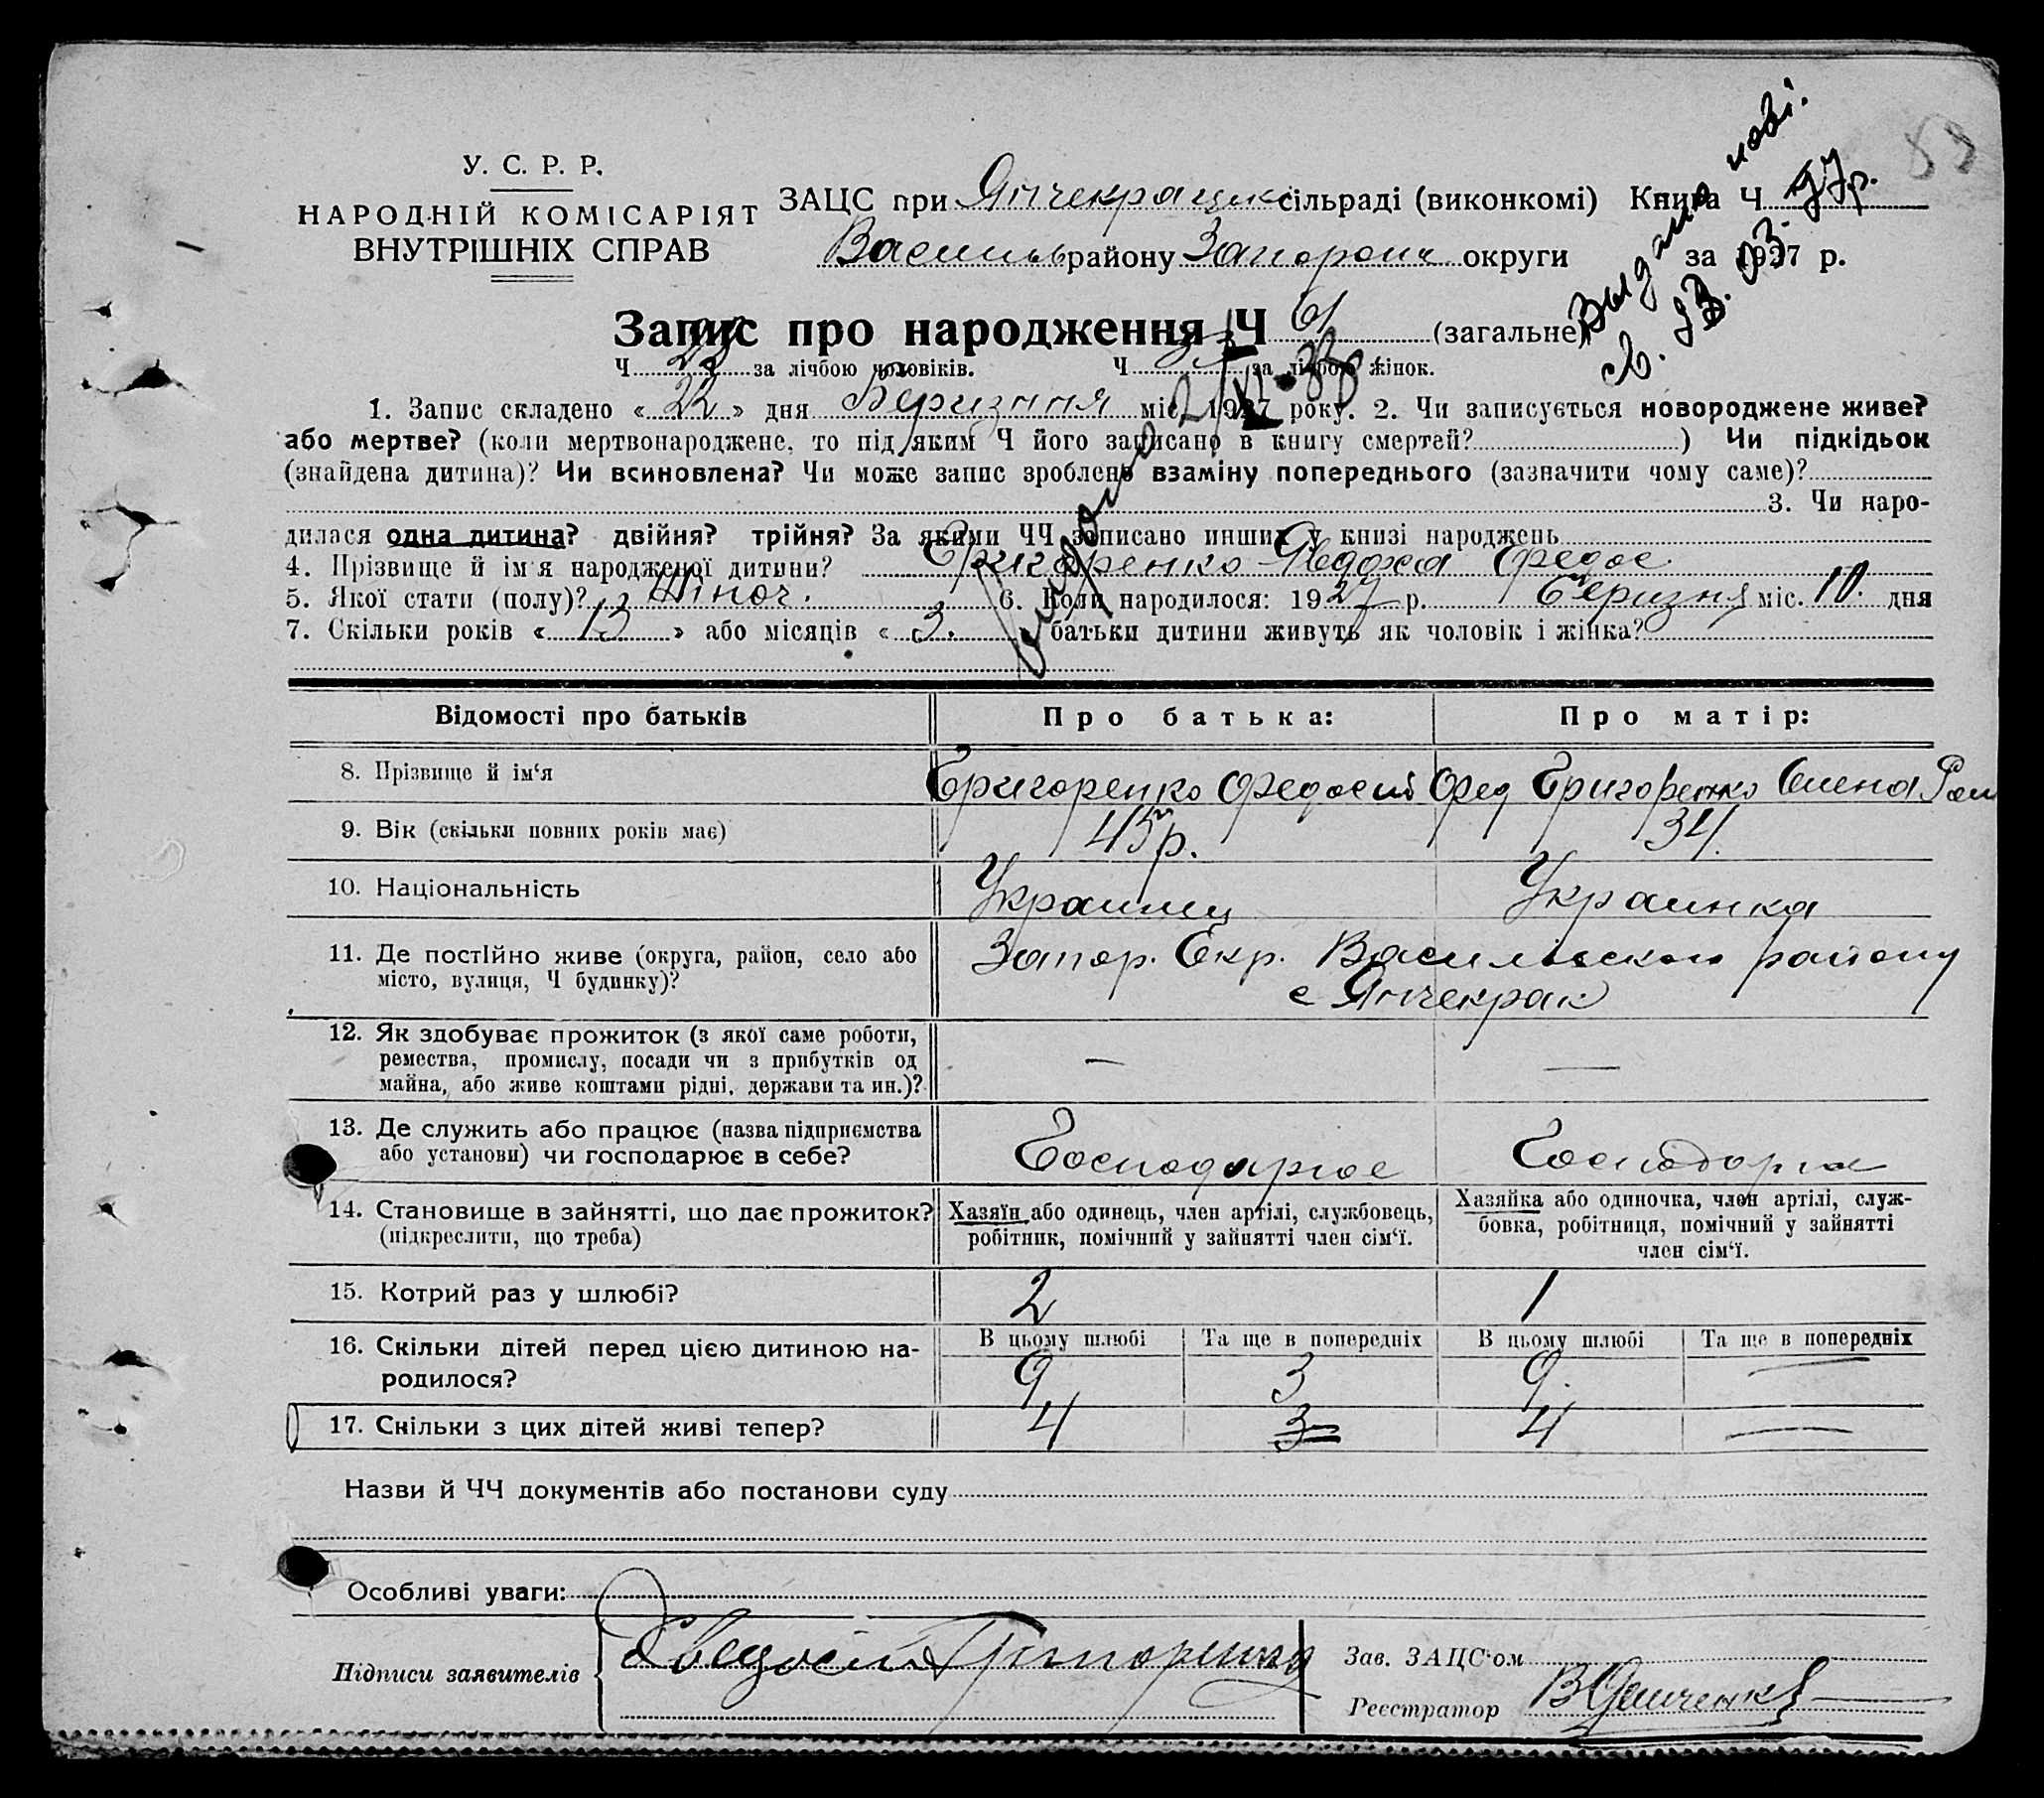 У. С. Р. Р.
НАРОДНІЙ КОМІСАРІЯТ
ВНУТРІШНІХ СПРАВ
ЗАЦС при Янчекрацкі сільраді (виконкомі) Книга Ч
Васильв району Запорож округи за 1927 р.
Запис про народження Ч 61 (загальне)
Ч за лічбою чоловіків. Ч за лічбою жінок.
1. Запис складено « 22 » дня Березння міс. 1927 року. 2. Чи записується новороджене живе?
або мертве? (коли мертвонароджене, то під яким Ч його записано в книгу смертей? ) Чи підкідьок
(знайдена дитина)? Чи всиновлена? Чи може запис зроблено взаміну попереднього (зазначити чому саме)?
3. Чи наро-
дилася одна дитина? двійня? трійня? За якими ЧЧ записано инших у книзі народжень
4. Прізвище й ім'я народженої дитини? Григоренко Явдоха Федос
5. Якої стати (полу)? Жіноч. 6. Коли народилося: 1927 р. Березня міс. 10. дня
7. Скільки років « 13 » або місяців « 3. батьки дитини живуть як чоловік і жінка?
Відомості про батьків Про батька: Про матір:
8. Прізвище й ім'я Григоренко Федосий Фед Григоренко Олена Ром
9. Вік (скільки повних років має) 45 р. 34.
10. Національність Украинец Украинка
11. Де постійно живе (округа, район, село або Запор. Окр. Василівского району
місто, вулиця, Ч будинку)? с Янчекрак
12. Як здобуває прожиток (з якої саме роботи,
ремества, промислу, посади чи з прибутків од — —
майна, або живе коштами рідні, держави та ин.)?
13. Де служить або працює (назва підприємства
або установи) чи господарює в себе? Господарює Господорює
14. Становище в зайнятті, що дає прожиток? Хазяїн або одинець, член артілі, службовець, Хазяйка або одиночка, член артілі, служ-
(підкреслити, що треба) робітник, помічний у зайнятті член сім'ї. бовка, робітниця, помічний у зайнятті
член сім'ї.
15. Котрий раз у шлюбі? 2 1
16. Скільки дітей перед цією дитиною на- В цьому шлюбі Та ще в попередніх В цьому шлюбі Та ще в попередніх
родилося? 9 3 9. —
17. Скільки з цих дітей живі тепер? 4 3 4 —
Назви й ЧЧ документів або постанови суду
Особливі уваги:
Підписи заявителів Зав. ЗАЦС'ом
Реєстратор